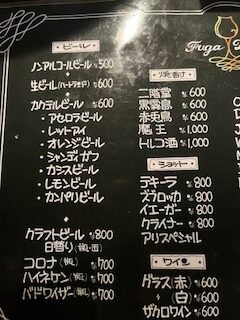 Fuga
ビール
ノンアルコールビール ¥500
生ビール(ハートランド) ¥600
カクテルビール ¥600
・アセロラビール
・レッドアイ
・オレンジビール
・シャンディガフ
・カシスビール
・レモンビール
・カンパリビール
クラフトビール ¥800
日替り
コロナ(瓶) ¥700
ハイネケン(瓶) ¥700
バドワイザー(瓶) ¥700
焼酎
二階堂 ¥600
黒霧島 ¥600
赤兎馬 ¥600
魔王 ¥1,000
トルコ酒 ¥1,000
ショット
テキーラ ¥800
ズブロッカ ¥800
イエーガー ¥800
クライナー ¥800
アリスペシャル
ワイン
グラス(赤) ¥600
〃(白) ¥600
ザクロワイン ¥600